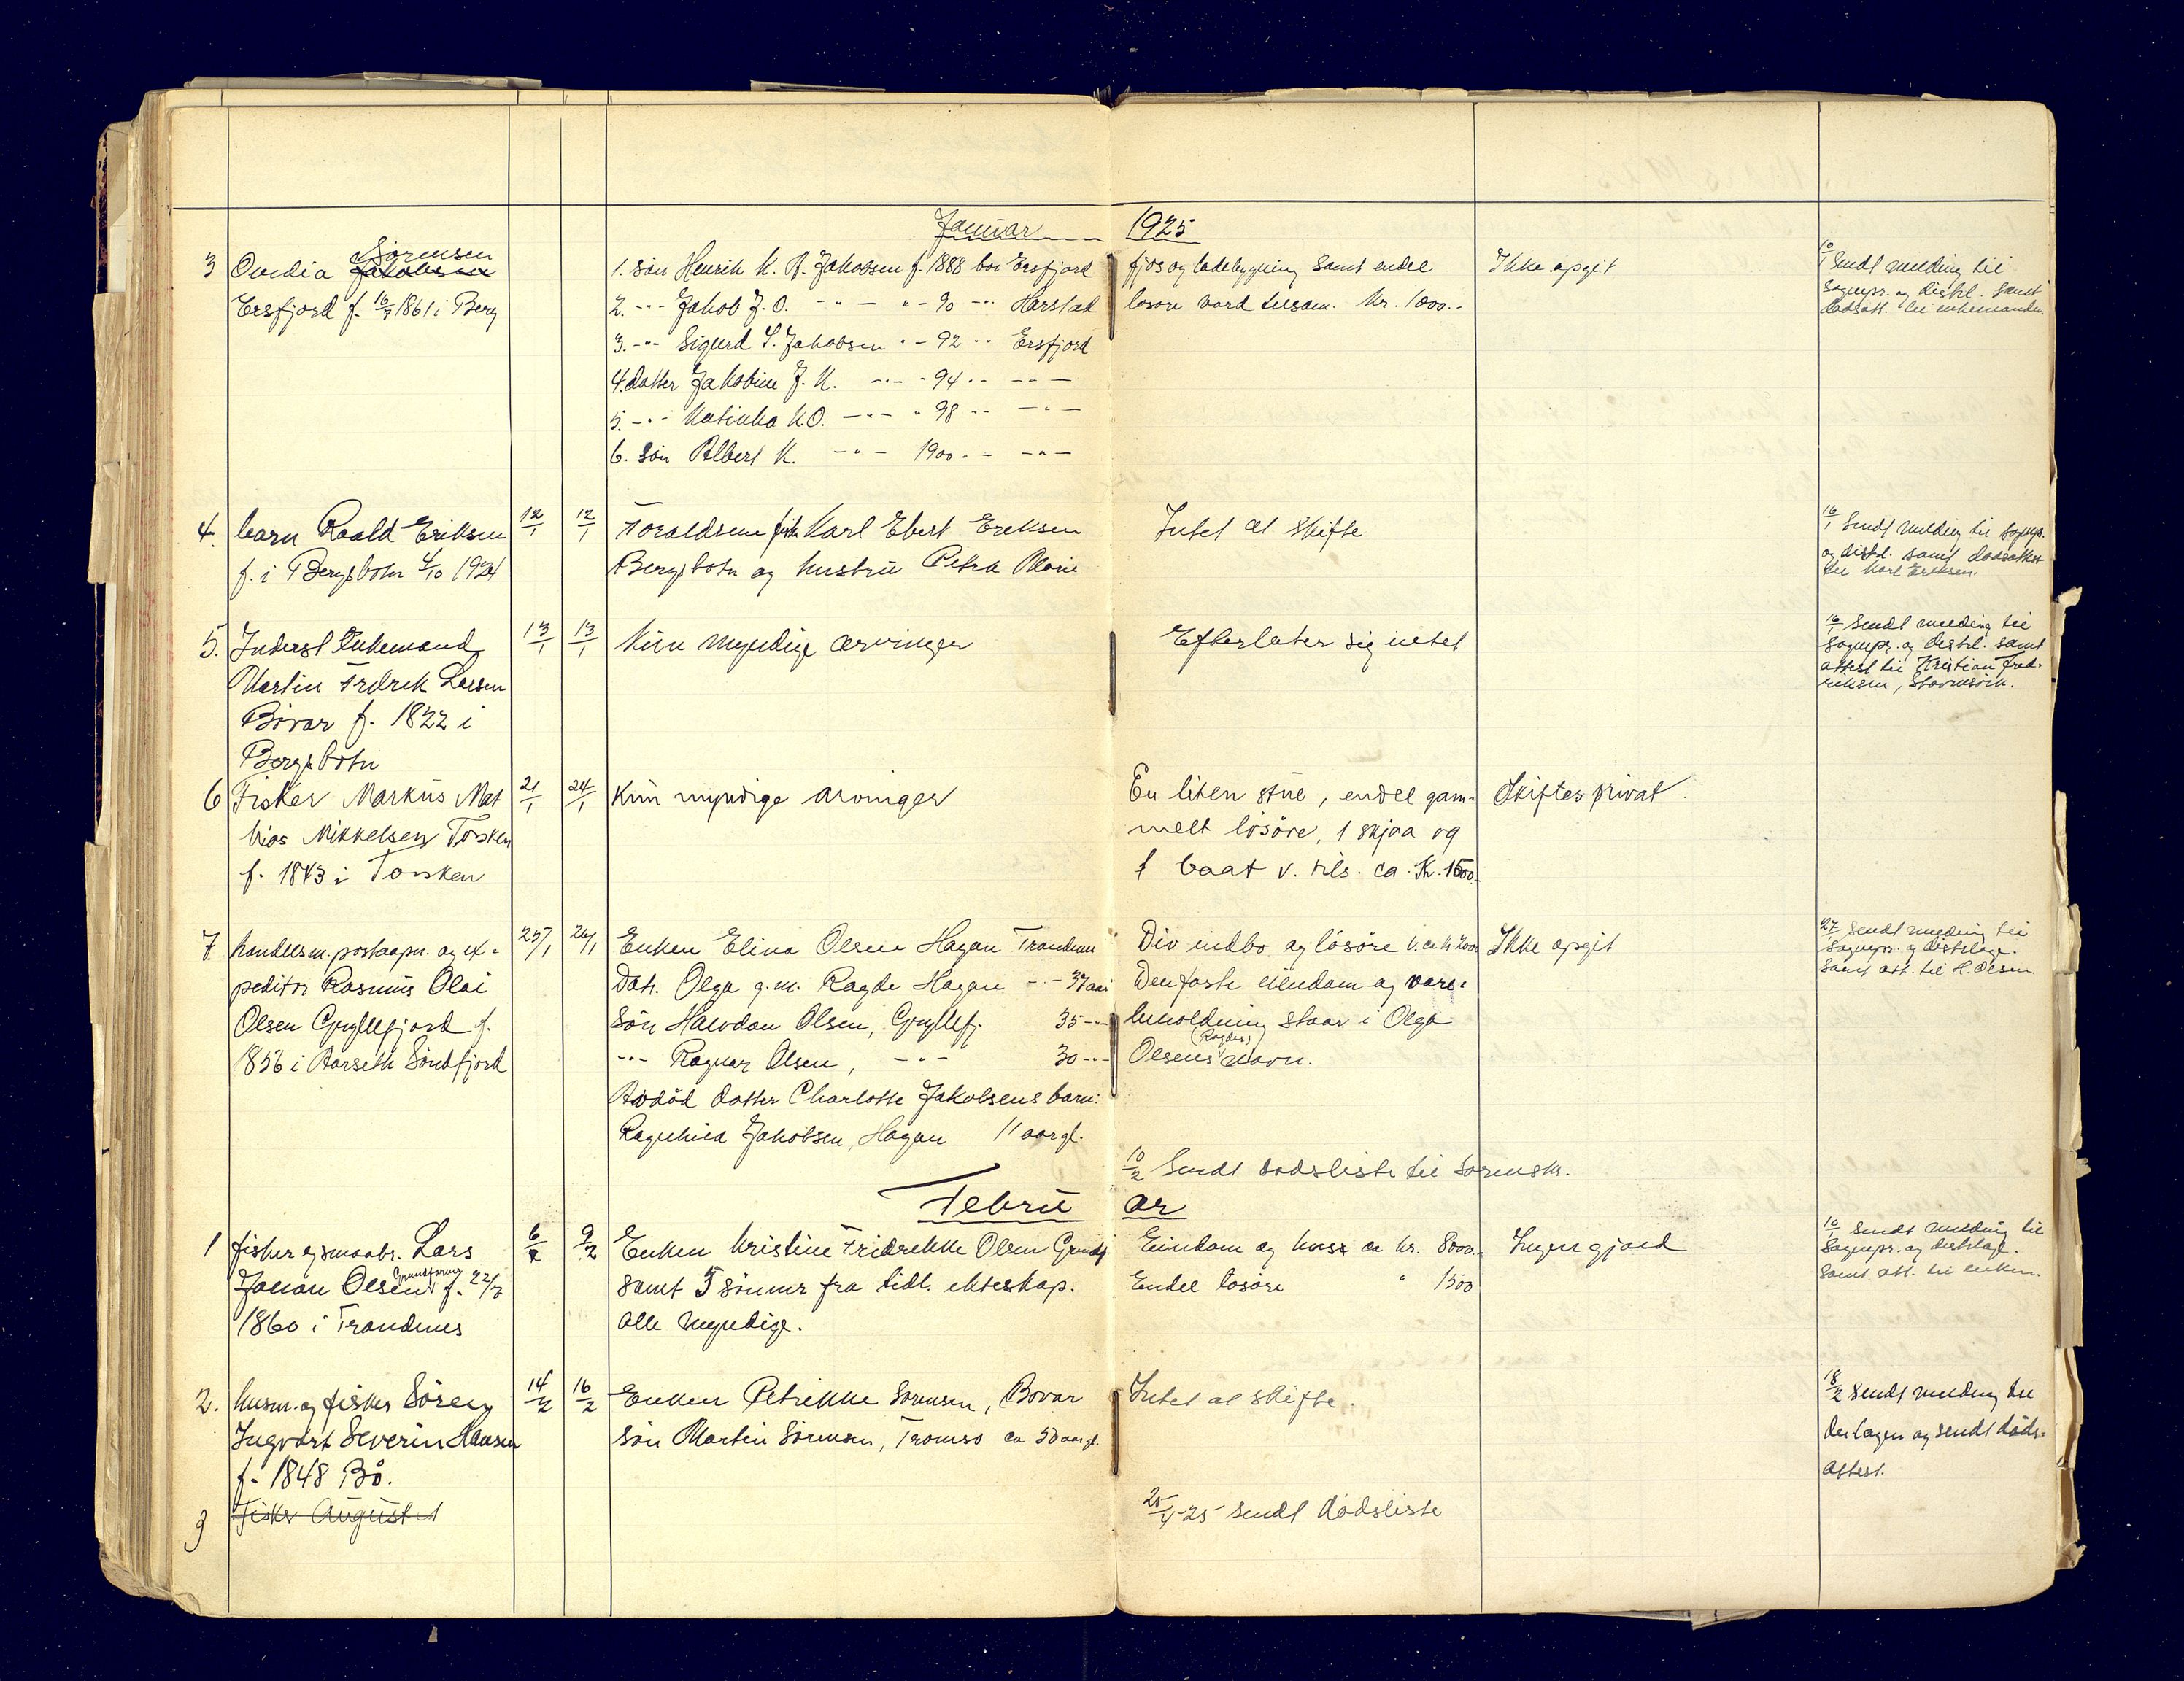 Januar 1925
3 Ovedia Jakobsen Sørensen
Ersfjord f. 16/7 1861 i Berg
1. Søn Henrik K. A. Jakobsen f. 1888 bor Ersfjord
2. -"- Jakob J. O. -"- " - 90 -"- Harstad
3. -"- Sigurd S. Jakobsen " - 92 -"- Ersfjord
4. Datter Jakobine J. K. -"- - 94 -"- -"-
5. -"- Katinka K.O. -"- " 98 -"- -"-
6. Søn Albert K. -"- 1900 -"- -"-
fjos og ladebygning samt endel
løsøre værd tilsam. Kr. 1000.-
Ikke opgit
10/1 Sendt melding til
sognepr. og distrl. samt
dødsatt. til enkemanden.
4. barn Roald Eriksen
f. i Bergsbotn 4/10 1924
12/1 12/1
Foraldrene fisk Karl Ebert Eriksen
Bergsbotn og hustru Petra Marie
Intet at skifte
16/1 Sendt melding til sognep.
og distrl. samt dødsattest
til Karl Eriksen.
5. Inderst Enkemand
Martin Fredrik Larsen
Bøvær f. 1822 i
Bergsbotn
13/1 13/1
Kun myndige arvinger
Efterlater sig intet
16/1 Sendt melding til
sognepr. og distrl. samt
attest til Kristian Fred-
riksen,
6 Fisker Markus Mat
hias Mikkelsen Torsken
f. 1843 i Torsken
21/1 24/1
Kun myndige arvinger
En liten stue, endel gam-
melt løsøre, 1 skjaa og
1 baat v. tils. ca. Kr. 1500.-
Skiftes privat.
7. handelsm. postaapn. og ex-
peditør Rasmus Olai
Olsen Gryllefjord f.
1856 i Aarseth Søndfjord
25/1 26/1
Enken Elina Olsen Hagan Trandenes
Datr. Olga g.m. Ragde Hagan -"- 37 aar
Søn Halvdan Olsen, Gryllefj. 35 -"-
-"- Ragnar Olsen, -"- 30 -"-
Avdød datter Charlotte Jakobsens barn:
Ragnhild Jakobsen, Hagan 11 aar gl.
Div indbo og løsøre v. ca kr. 200.
Den faste eiendom og vare-
beholdning staar i Olga
Olsens (Ragdes) navn.
Ikke opgit
27/1 Sendt melding til
sognepr. og distrlæge.
Samt att. til H. Olsen
10/2 Sendt dødsliste til sorensk.
Februar
1 fisker og smaabr. Lars
Johan Olsen Grundfarnes f. 22/3
1860 i Trandenes
6/2 9/2
Enken Kristine Fridrikke Olsen Grundf
samt 5 sønner fra tidl. ekteskap.
alle myndige.
Eiendom og huse ca kr. 8000.-
Endel løsøre " 1500
Ingen gjæld
10/ Sendt melding til
Sognepr. og distrlæge.
Samt att. til enken.
2. husm. og fisker Søren
Ingvart Severin Hansen
f. 1848 Bø.
14/2 16/2
Enken Petrikke Sørensen, Bøvær
Søn Martin Sørensen, Tromsø ca 50 aar gl.
Intet at skifte.
18/2 Sendt melding til
derlægen og sendt døds-
attest.
3 Fisker August
25/4 25 sendt dødsliste